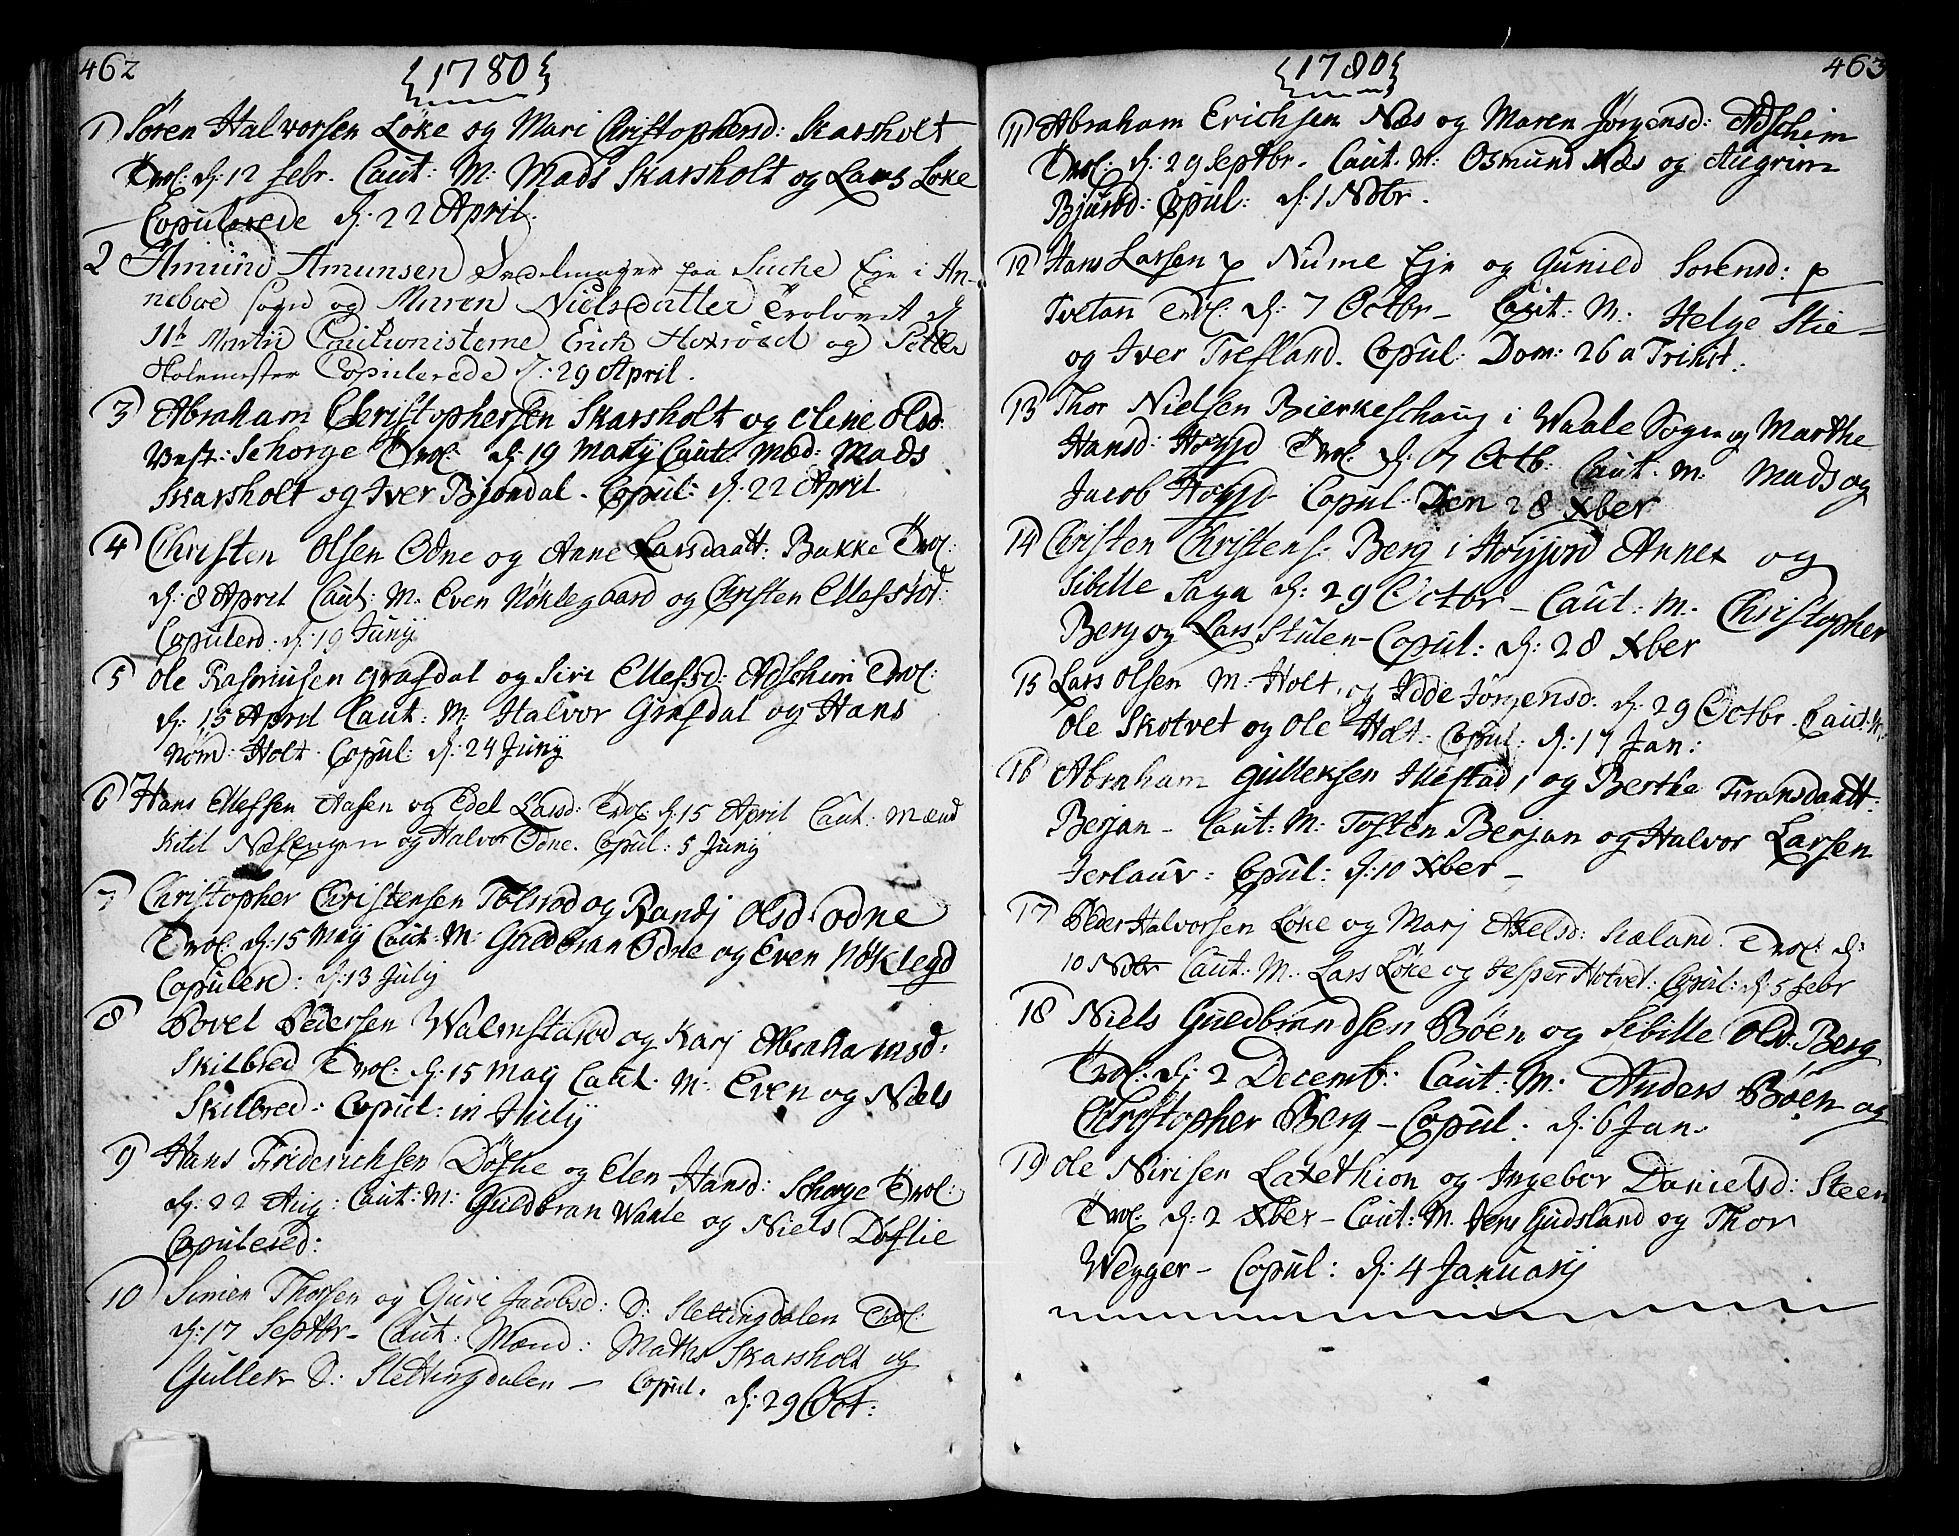 462
1780
1) Søren Halvorsen Løke og Mari Christophersd: Skarsholt
Trol: d: 12 Febr. Caut: M: Mads Skarsholt og Lars Løke
Copulerede d: 22 April.
2 Amund Amunsen paa Suche Eje i An-
neboe Sogn og Maren Nielsdatter Trolovet d
11te Martii Cautionisterne Erich og Petter
Skolemester Copulerede d: 29 April.
3) Abraham Christophersen Skarsholt og Eline Olsd:
Vest: Schorge Trol: d: 19 Cautl. Mæd: Mads
Skarsholt og Iver Bjøndal. Copul: d: 22 April
4) Christen Olsen Odne og Anne Larsdaatt: Bakke Trol:
d: 8 April Caut: M. Even Nøklegaard og Christen Ellefsrød:
Copulerd. d: 19 Junij
5) Ole Rasmusen Grafdal og Siri Ellefsd: Adschim Trol:
d: 15 April Caut: M: Halvor Grafdal og Hans
Nord: Holt. Copul: d: 24 Junij
6) Hans Ellefsen Aasen og Edel Larsd: Trol: d: 15 April Caut: Mænd
Kitil Næsengen og Halvor Odne. Copul: 5 Junij
7) Christopher Christensen Tolsrød og Randj Olsd: Odne
Trol: d: 15 Maij Caut: M: Guldbran Odne og Even Nøklegd
Copulerd: d: 13 Julij
8) Povel Pedersen Walmstad og Karj Abrahamsd:
Skilbred Trol: d: 15 Maij Caut: M: Even og Niels
Skilbred: Copul: in Julij
9) Hans Friderichsen Døflie og Elen Hansd: Schorge Trol:
d: 22 Aug: Caut: M: Guldbran Waale og Niels Døflie
Copulered:
10) Simen Thorsen og Guri Jacobsd: S: Slettingdalen Trol:
d: 17 Septbr- Caut: Mænd: Mathis Skarsholt og
Gullek S: Slettingdalen - Copul. d: 29 Oct:
463
1780
11) Abraham Erichsen Næs og Maren Jørgensd: Adschim
Trol: d: 29 Septbr- Caut. M: Osmund Næs og Augrim
Copul: d: 1 Novbr.
12 Hans Larsen p Nume Eje og Gunild Sorensd: p
Tvetan Trol: d: 7 Octbr- Caut: M: Helge Stie-
og Iver Trefland. Copul: Dom: 26 a Trinit.
13 Thor Nielsen Bierkeschaug i Waale Sogn og Marthe
Hansd: Trol: d: 7 Octb: Caut: M: Mads og
Jacob Copul: Den 28 Xber
14) Christen Christens: Berg i Høyjord Annex og
Sibille Saga d: 29 Octbr - Caut: M: Christopher
Berg og Lars Stulen - Copul: d: 28 Xber
15 Lars Olsen M: Holt, og Idde Jørgensd: d: 29 Octbr. Caut: M.
Ole Skotvet og Ole Holt. Copul: d: 17 Jan:
16) Abraham Gulleksen Illestad, og Berthe Fransdaatt:
Berjan - Caut: M: Tosten Berjan og Halvor Larsen
Jerlauv: Copul: d: 10 Xber -
17) Peder Halvorsen Løke og Marj Axelsd: Sæland. Trol: d:
10 Novbr Caut: M: Lars Løke og Jesper Hotvet: Copul: d: 5 Febr
18) Niels Guldbrandsen Bøen og Sibille Olsd: Berg
Trol: d: 2 Decemb: Caut: M: Anders Bøen og
Christopher Berg - Copul: d: 6 Jan.
19) Ole Nirisen og Ingebor Danielsd: Steen
Trol: d: 2 Xber - Caut: M. Jens Gudsland og Thor
Wegger - Copul: d: 4 Januarij